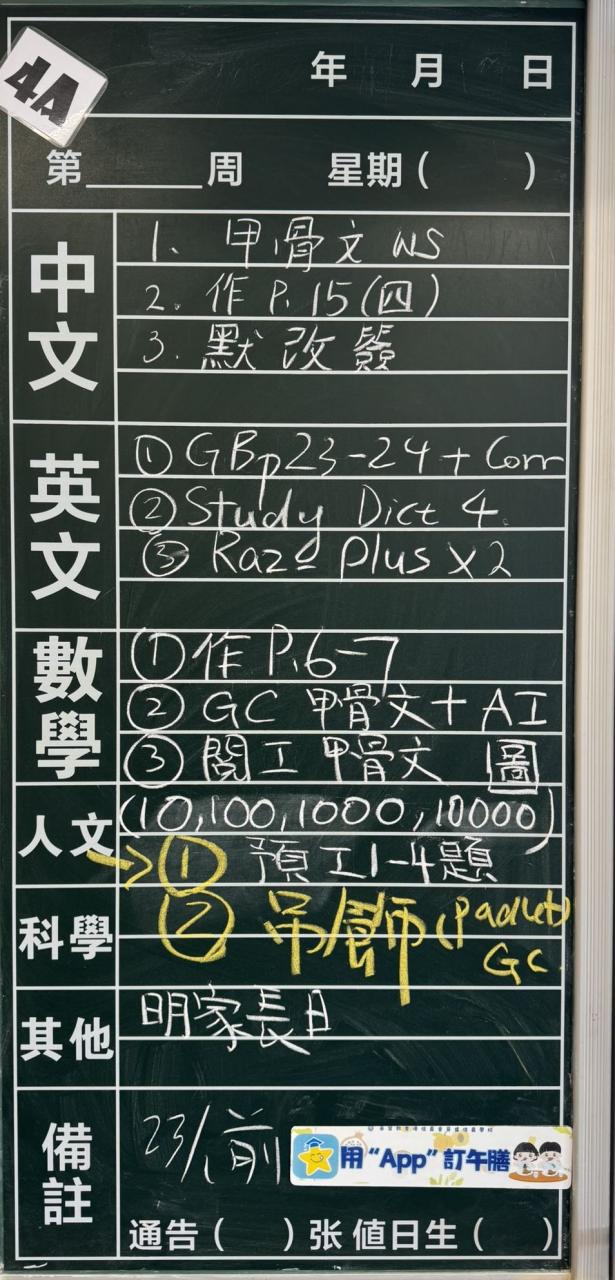 4A
年 月 日
第______周 星期( )
中文
1. 甲骨文 WS
2. 作 P.15(四)
3. 默改簽
英文
① GBp23-24 + Corr
② Study Dict 4
③ Raz Plus x2
數學
① 作 P.6-7
② GC 甲骨文 + AI
③ 閱工 甲骨文 圖
(10,100,1000,10000)
人文
→① 預工1-4題
科學
② 吊飾(Padlet)
GC
其他
明家長日
備註
23/ 前
用“App”訂午膳
通告( )张 值日生( )